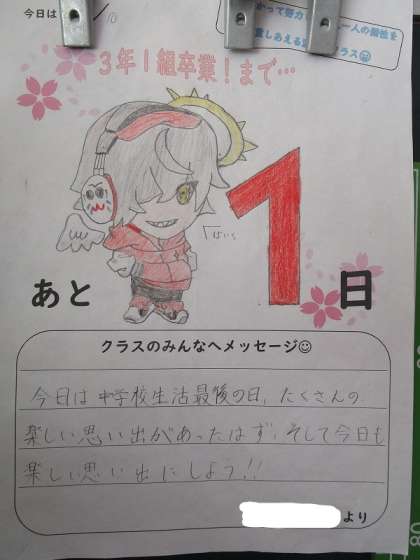 今日は /10
かって努力
一人の個性を
重しあえる
ラス
3年1組卒業!まで…
あと
1
日
クラスのみんなへメッセージ☺
今日は中学校生活最後の日、たくさんの
楽しい思い出があったはず、そして今日も
楽しい思い出にしよう!!
より